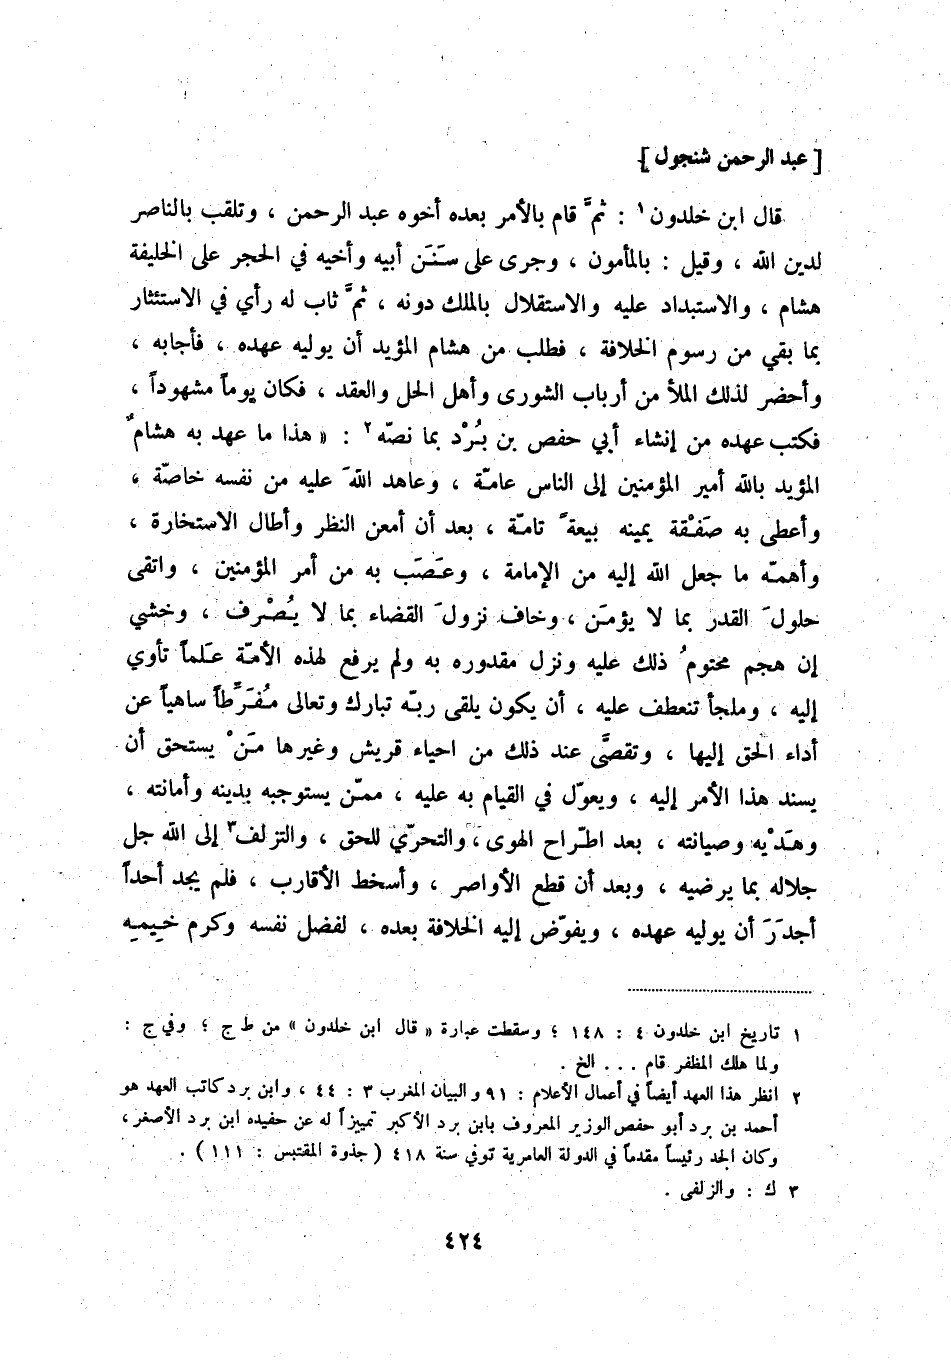 [ عبد الرحمن شنجول ]
قال ابن خلدون ١ : ثمَّ قام بالأمر بعده أخوه عبد الرحمن ، وتلقب بالناصر
لدين الله ، وقيل : بالمأمون ، وجرى على سَنَن أبيه وأخيه في الحجر على الخليفة
هشام ، والاستبداد عليه والاستقلال بالملك دونه ، ثمَّ ثاب له رأي في الاستئثار
بما بقي من رسوم الخلافة ، فطلب من هشام المؤيد أن يوليه عهده ، فأجابه ،
وأحضر لذلك الملأ من أرباب الشورى وأهل الحل والعقد ، فكان يوماً مشهوداً ،
فكتب عهده من إنشاء أبي حفص بن بُرْد بما نصّه ٢ : « هذا ما عهد به هشامٌ
المؤيد بالله أمير المؤمنين إلى الناس عامّة ، وعاهد اللهَ عليه من نفسه خاصّة ،
وأعطى به صَفْقة يمينه بيعةً تامّة ، بعد أن أمعن النظر وأطال الاستخارة ،
وأهمّه ما جعل الله إليه من الإمامة ، وعَصَب به من أمر المؤمنين ، واتقى
حلولَ القدر بما لا يؤمَن ، وخاف نزولَ القضاء بما لا يُصْرف ، وخشي
إن هجم محتومُ ذلك عليه ونزل مقدوره به ولم يرفع لهذه الأمّة عَلَماً تأوي
إليه ، وملجأ تنعطف عليه ، أن يكون يلقى ربّه تبارك وتعالى مُفَرِّطاً ساهياً عن
أداء الحق إليها ، وتقصَّى عند ذلك من احياء قريش وغيرها مَنْ يستحق أن
يسند هذا الأمر إليه ، ويعوّل في القيام به عليه ، ممّن يستوجبه بدينه وأمانته ،
وهَدْيه وصيانته ، بعد اطّراح الهوى ، والتحرّي للحق ، والتزلف ٣ إلى الله جل
جلاله بما يرضيه ، وبعد أن قطع الأواصر ، وأسخط الأقارب ، فلم يجد أحداً
أجدَرَ أن يوليه عهده ، ويفوّض إليه الخلافة بعده ، لفضل نفسه وكرم خِيمِهِ
١ تاريخ ابن خلدون ٤ : ١٤٨ ؛ وسقطت عبارة « قال ابن خلدون » من ط ج ؛ وفي ج :
ولما هلك المظفر قام . . . الخ .
٢ انظر هذا العهد أيضاً في أعمال الأعلام : ٩١ والبيان المغرب ٣ : ٤٤ ، وابن برد كاتب العهد هو
أحمد بن برد أبو حفص الوزير المعروف بابن برد الأكبر تمييزاً له عن حفيده ابن برد الأصغر ،
وكان الجد رئيساً مقدماً في الدولة العامرية توفي سنة ٤١٨ ( جذوة المقتبس : ١١١ ) .
٣ ك : والزلفى .
٤٢٤